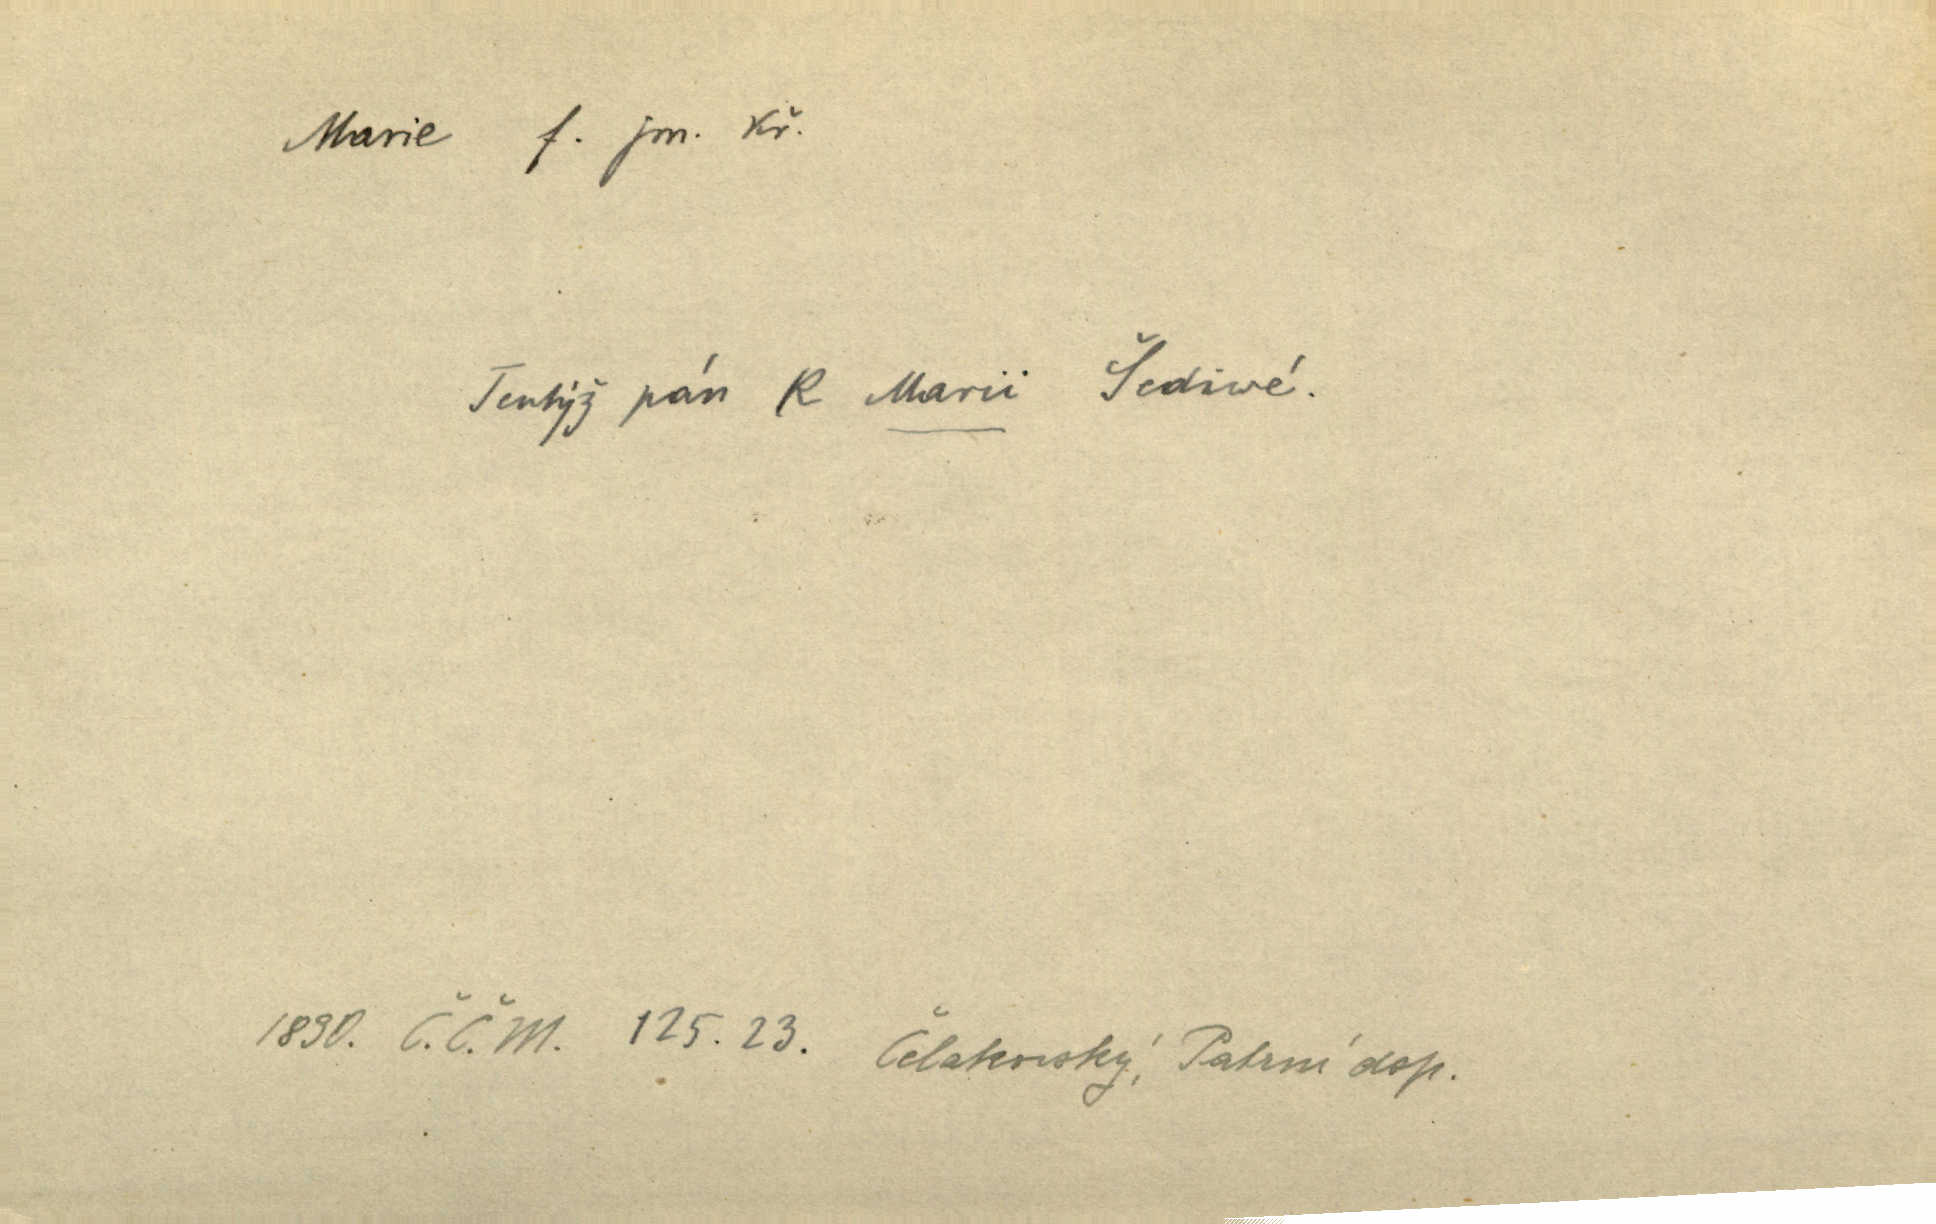 Marie f. jm. kř.
Tentýž pán k Marii Šediwé.
1830. Č.Č.M. 125. 23. Čelakovský, Patrní dop.